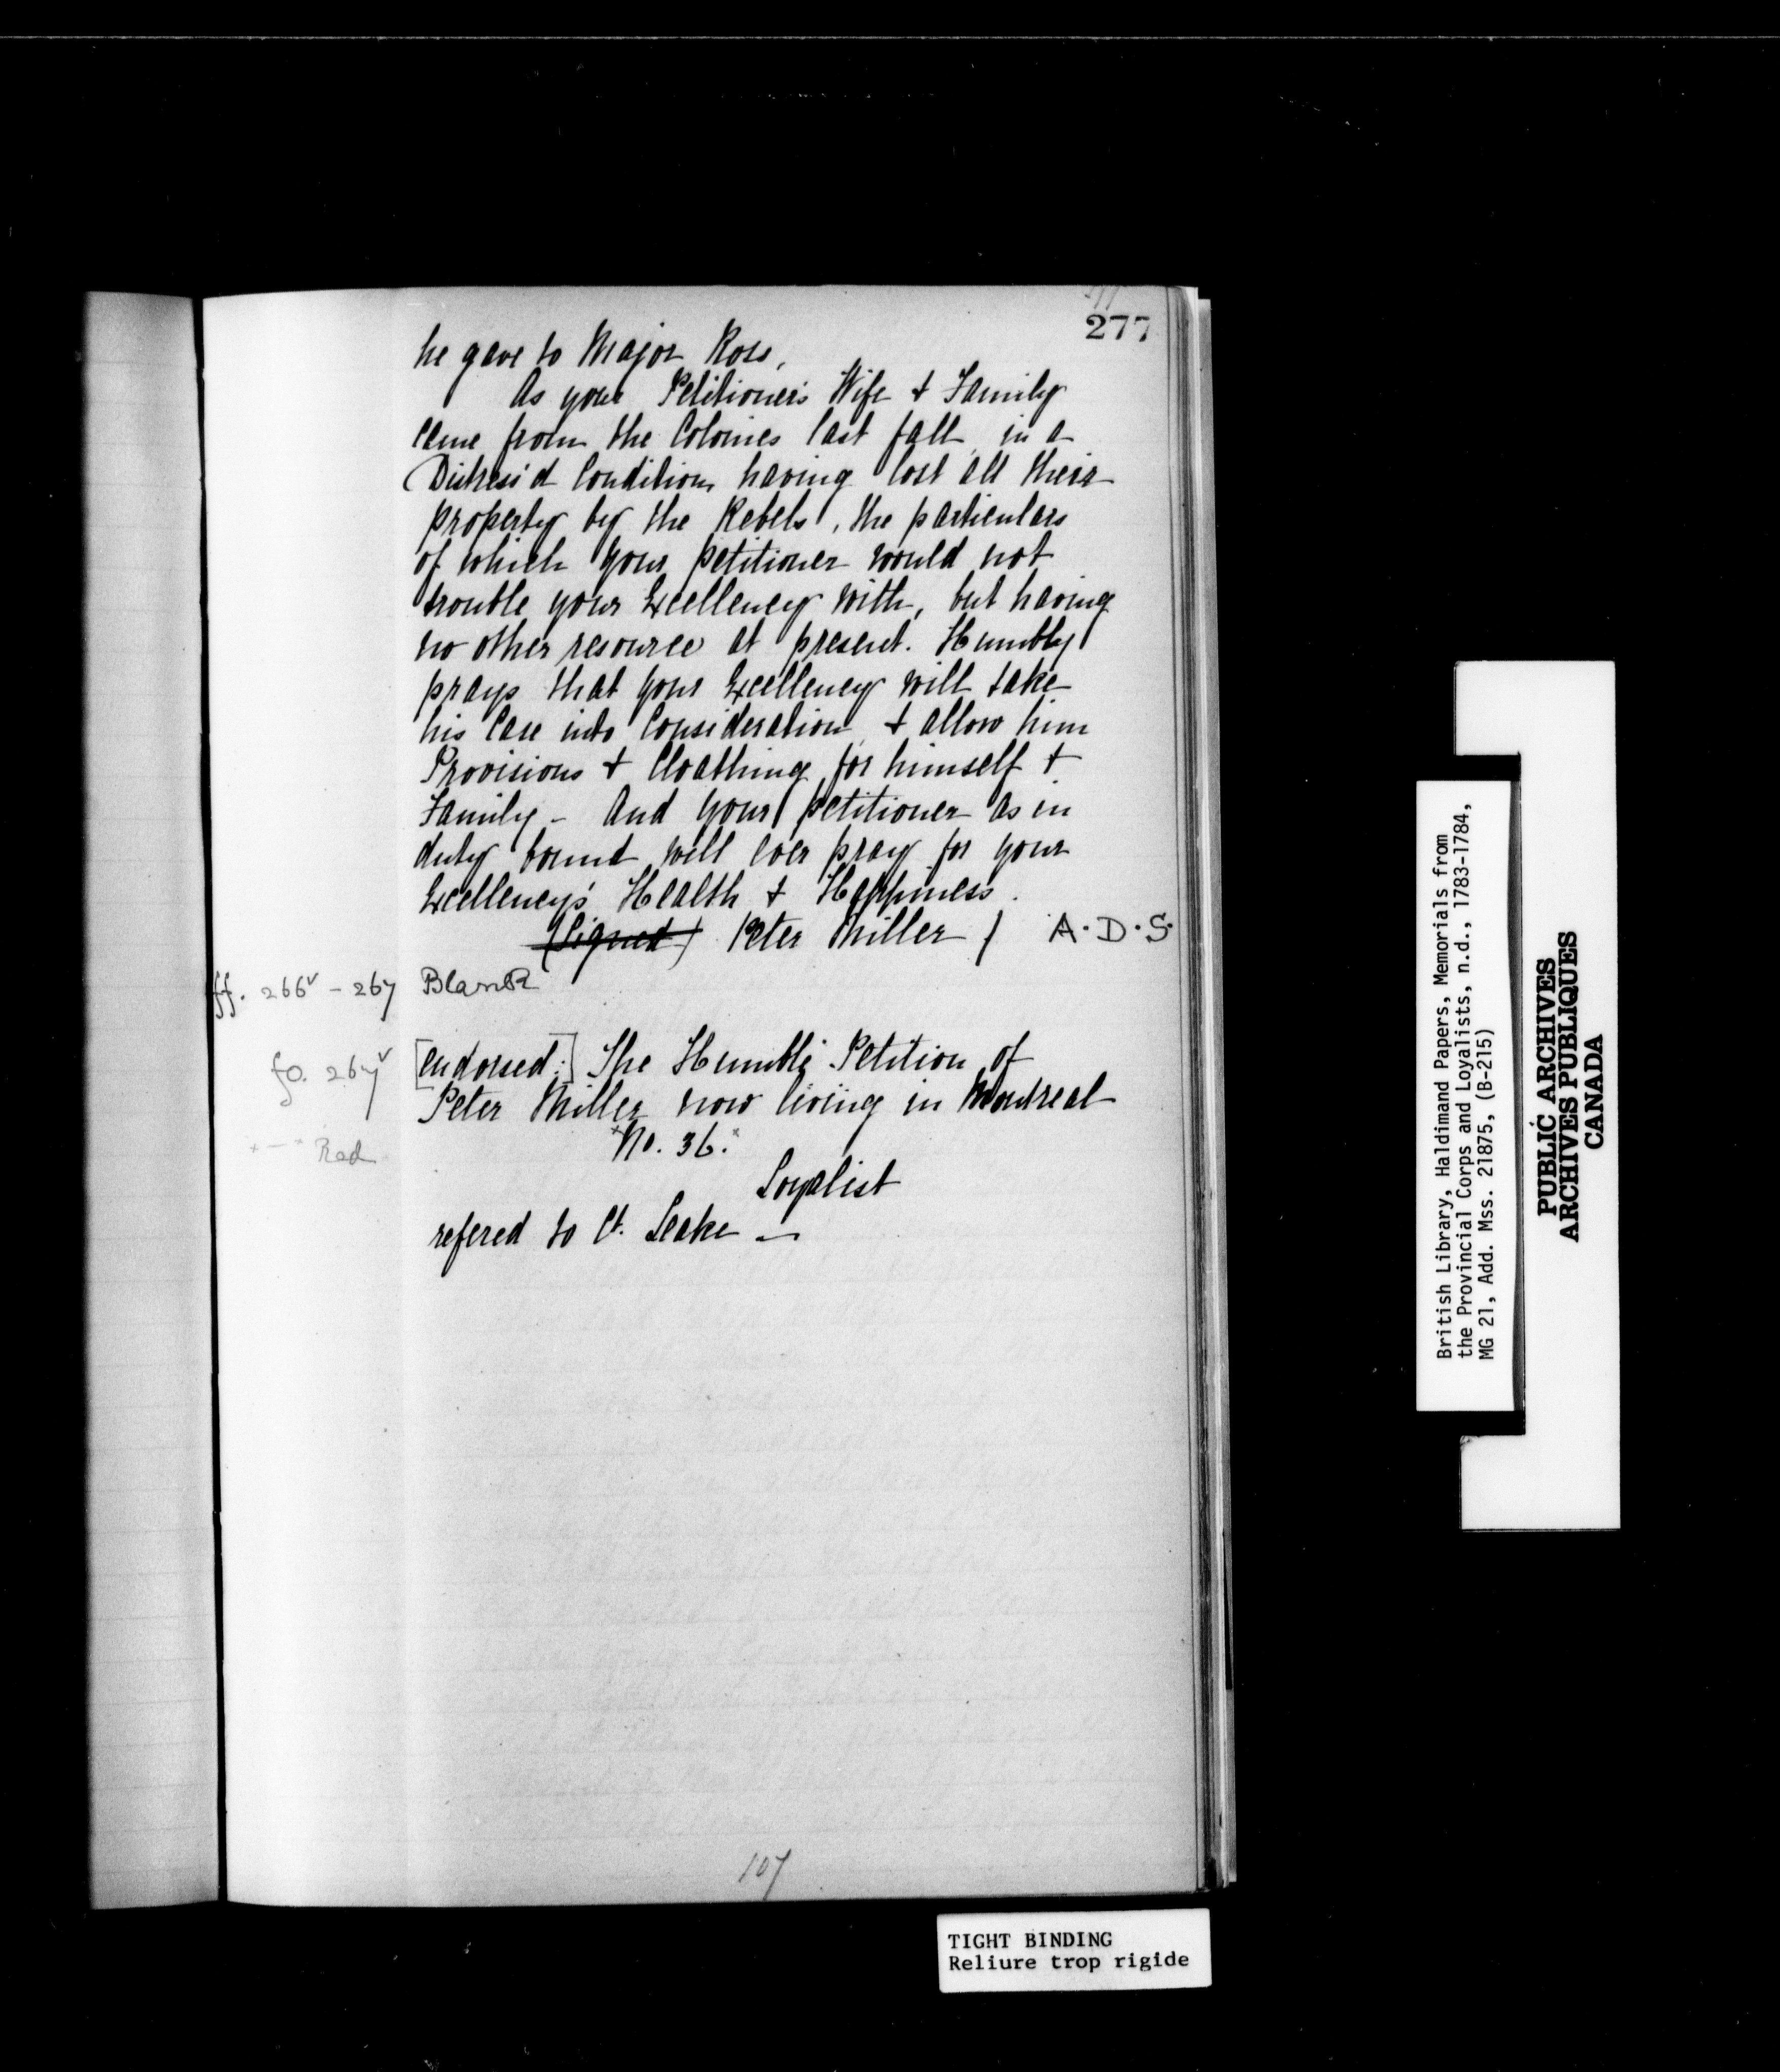 277
he gave to Major Ross.
As your Petitioner's Wife & Family
came from the Colonies last fall in a
Distress'd Condition having lost all their
property by the Rebels, the particulars
of which your petitioner would not
trouble your Excellency with, but having
no other resource at present. Humbly
prays that your Excellency will take
his Case into Consideration & allow him
Provisions & Cloathing for himself &
Family - And your petitioner as in
duty bound will ever pray for your
Excellency's Health & Happiness.
(Signed) Peter Miller / A.D.S.
ff. 266v - 267 Blank
fo. 267v [endorsed:] The Humble Petition of
Peter Miller now living in Montreal
Red "No. 36."
Loyalist
refered to Ct. Leake —
107
TIGHT BINDING
Reliure trop rigide
British Library, Haldimand Papers, Memorials from
the Provincial Corps and Loyalists, n.d., 1783-1784,
MG 21, Add. Mss. 21875, (B-215)
PUBLIC ARCHIVES
ARCHIVES PUBLIQUES
CANADA